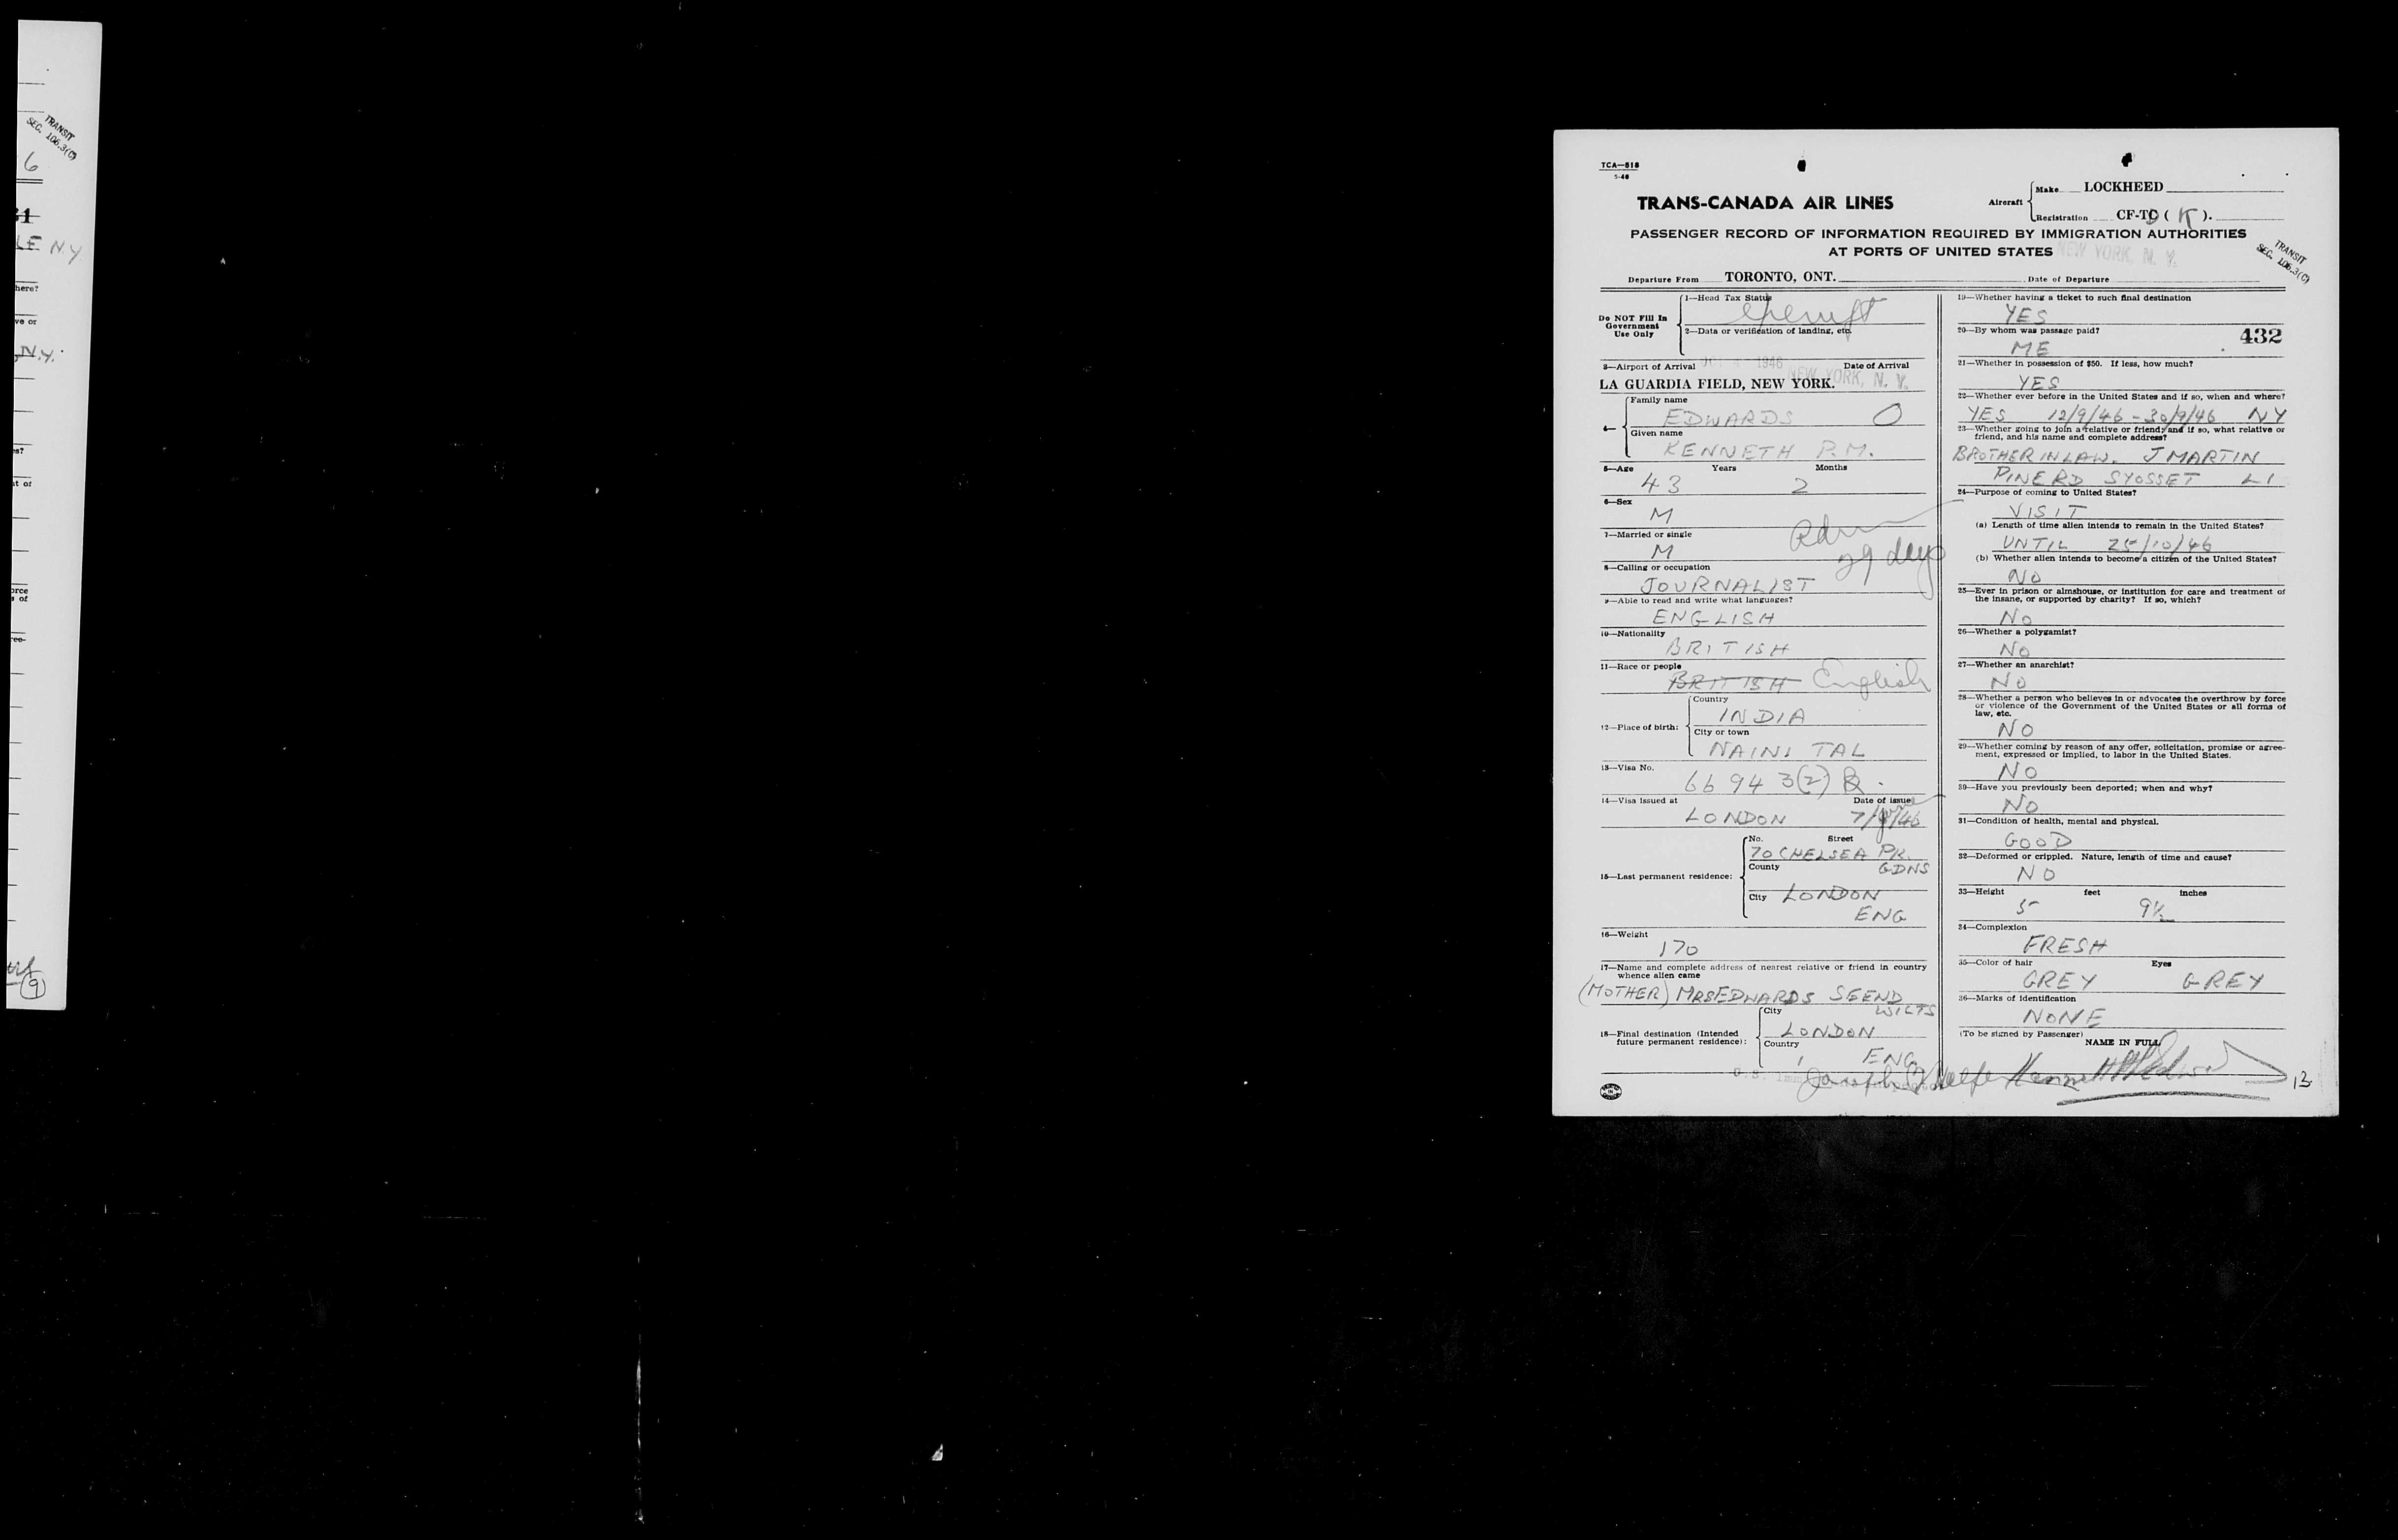 TRANSIT
SEC. 106.3(C)
6
31
LE N.Y
here?
ve or
N.Y.
s?
t of
orce
s of
ree-
9
TCA—518
5-46
TRANS-CANADA AIR LINES
Aircraft
Make LOCKHEED
Registration CF-TC ( K ).
PASSENGER RECORD OF INFORMATION REQUIRED BY IMMIGRATION AUTHORITIES
AT PORTS OF UNITED STATES
NEW YORK, N. Y.
TRANSIT
SEC. 106.3(C)
Departure From TORONTO, ONT. Date of Departure
Do NOT Fill In
Government
Use Only
1—Head Tax Status
Exempt
2—Data or verification of landing, etc.
3—Airport of Arrival 1946 Date of Arrival
LA GUARDIA FIELD, NEW YORK. NEW YORK, N. Y.
4—
Family name
EDWARDS O
Given name
KENNETH P.M.
5—Age Years Months
43 2
6—Sex
M
7—Married or single
M
Adm
29 days
8—Calling or occupation
JOURNALIST
9—Able to read and write what languages?
ENGLISH
10—Nationality
BRITISH
11—Race or people
BRITISH English
12—Place of birth:
Country
INDIA
City or town
NAINI TAL
13—Visa No.
66943(2)
14—Visa issued at Date of issue
LONDON 7/ /46
15—Last permanent residence:
No. Street
70 CHELSEA PK.
County GDNS
City LONDON
ENG
16—Weight
170
17—Name and complete address of nearest relative or friend in country
whence alien came
(MOTHER) MRS EDWARDS SEEND
WILTS
18—Final destination (Intended
future permanent residence):
City
LONDON
Country
ENG
19—Whether having a ticket to such final destination
YES
20—By whom was passage paid?
432
ME
21—Whether in possession of $50. If less, how much?
YES
22—Whether ever before in the United States and if so, when and where?
YES 12/9/46 - 30/9/46 NY
23—Whether going to join a relative or friend; and if so, what relative or
friend, and his name and complete address?
BROTHER IN LAW. J MARTIN
PINE RD SYOSSET LI
24—Purpose of coming to United States?
VISIT
(a) Length of time alien intends to remain in the United States?
UNTIL 25/10/46
(b) Whether alien intends to become a citizen of the United States?
NO
25—Ever in prison or almshouse, or institution for care and treatment of
the insane, or supported by charity? If so, which?
NO
26—Whether a polygamist?
NO
27—Whether an anarchist?
NO
28—Whether a person who believes in or advocates the overthrow by force
or violence of the Government of the United States or all forms of
law, etc.
NO
29—Whether coming by reason of any offer, solicitation, promise or agree-
ment, expressed or implied, to labor in the United States.
NO
30—Have you previously been deported; when and why?
NO
31—Condition of health, mental and physical.
GOOD
32—Deformed or crippled. Nature, length of time and cause?
NO
33—Height feet inches
5 9½
34—Complexion
FRESH
35—Color of hair Eyes
GREY GREY
36—Marks of identification
NONE
(To be signed by Passenger)
NAME IN FULL
Joseph Kenneth PM Edwards
13